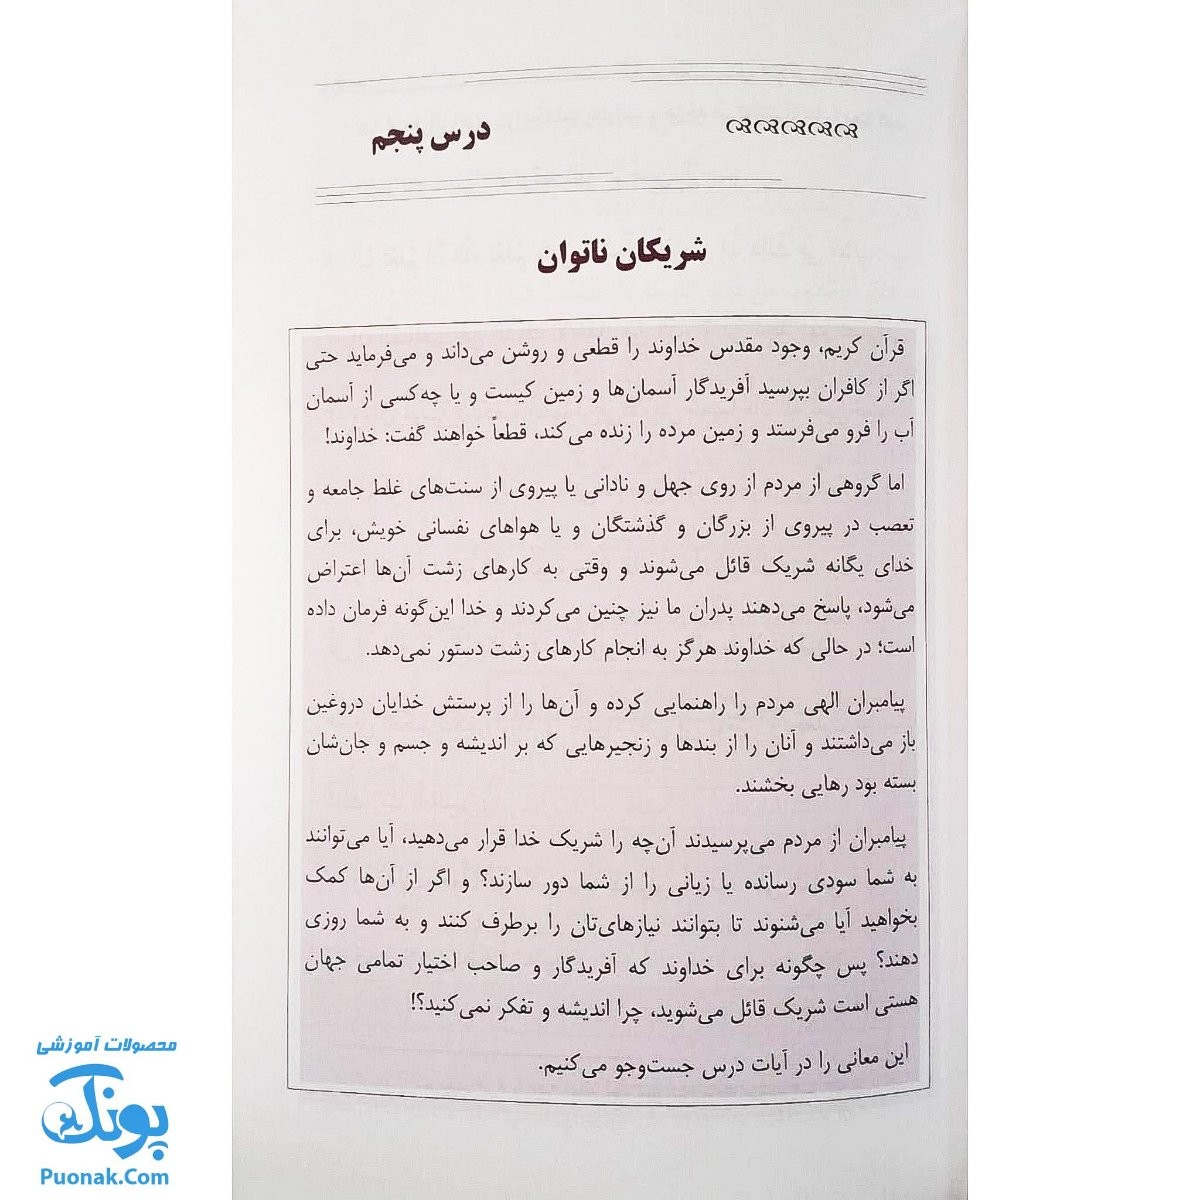 درس پنجم
شریکان ناتوان
قرآن کریم، وجود مقدس خداوند را قطعی و روشن می‌داند و می‌فرماید حتی
اگر از کافران بپرسید آفریدگار آسمان‌ها و زمین کیست و یا چه‌کسی از آسمان
آب را فرو می‌فرستد و زمین مرده را زنده می‌کند، قطعاً خواهند گفت: خداوند!
اما گروهی از مردم از روی جهل و نادانی یا پیروی از سنت‌های غلط جامعه و
تعصب در پیروی از بزرگان و گذشتگان و یا هواهای نفسانی خویش، برای
خدای یگانه شریک قائل می‌شوند و وقتی به کارهای زشت آن‌ها اعتراض
می‌شود، پاسخ می‌دهند پدران ما نیز چنین می‌کردند و خدا این‌گونه فرمان داده
است؛ در حالی که خداوند هرگز به انجام کارهای زشت دستور نمی‌دهد.
پیامبران الهی مردم را راهنمایی کرده و آن‌ها را از پرستش خدایان دروغین
باز می‌داشتند و آنان را از بندها و زنجیرهایی که بر اندیشه و جسم و جان‌شان
بسته بود رهایی بخشند.
پیامبران از مردم می‌پرسیدند آن‌چه را شریک خدا قرار می‌دهید، آیا می‌توانند
به شما سودی رسانده یا زیانی را از شما دور سازند؟ و اگر از آن‌ها کمک
بخواهید آیا می‌شنوند تا بتوانند نیازهای‌تان را برطرف کنند و به شما روزی
دهند؟ پس چگونه برای خداوند که آفریدگار و صاحب اختیار تمامی جهان
هستی است شریک قائل می‌شوید، چرا اندیشه و تفکر نمی‌کنید؟!
این معانی را در آیات درس جست‌وجو می‌کنیم.
محصولات آموزشی
پونک
Puonak.Com